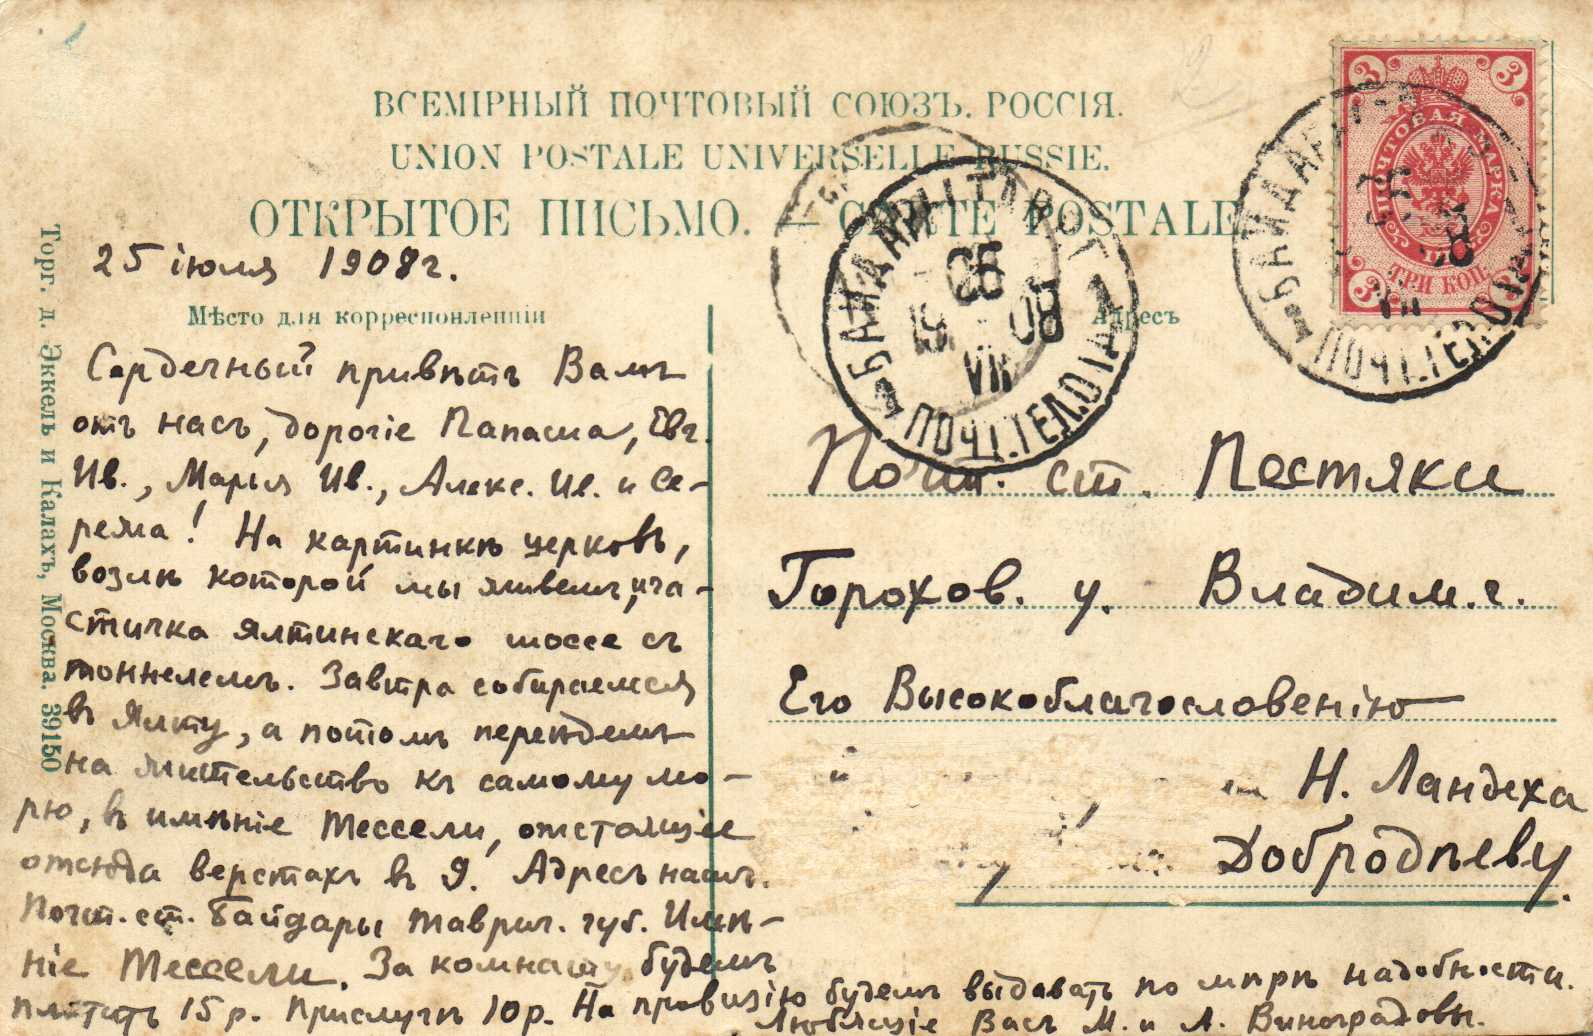 ВСЕМІРНЫЙ ПОЧТОВЫЙ СОЮЗЪ. РОССІЯ.
UNION POSTALE UNIVERSELLE RUSSIE.
ОТКРЫТОЕ ПИСЬМО. — CARTE POSTALE
25 іюля 1908 г.
Мѣсто для корреспонденціи
Сердечный привѣтъ Вамъ
отъ насъ, дорогіе Папаша, Евг.
Ив., Марья Ив., Алекс. Ив. и Се-
режа! На картинкѣ церковь,
возлѣ которой мы живемъ, и ча-
стичка ялтинскаго шоссе съ
тоннелемъ. Завтра собираемся
въ Ялту, а потомъ переѣдемъ
на жительство къ самому мо-
рю, въ имѣніе Тессели, отстоящее
отсюда верстахъ въ 9. Адресъ нашъ.
Почт. ст. Байдары Таврич. губ. Имѣ-
ніе Тессели. За комнату будемъ
платить 15 р. Прислугѣ 10 р. На провизію будемъ выдавать по мѣрѣ надобности.
Любящіе Васъ М. и А. Виноградовы.
Адресъ
Почт. ст. Пестяки
Горохов. у. Владим. г.
Его Высокоблагословенію
Н. Ландеха
Добродѣеву.
Торг. д. Эккель и Калахъ, Москва. 39150
БАЙДАРЫ ТАВР.
25
19 08
VII
ПОЧТ. ТЕЛ.
БАЙДАРЫ
VII
ПОЧТ. ТЕЛ.
3 3
ПОЧТОВАЯ МАРКА
ТРИ КОП.
3 3